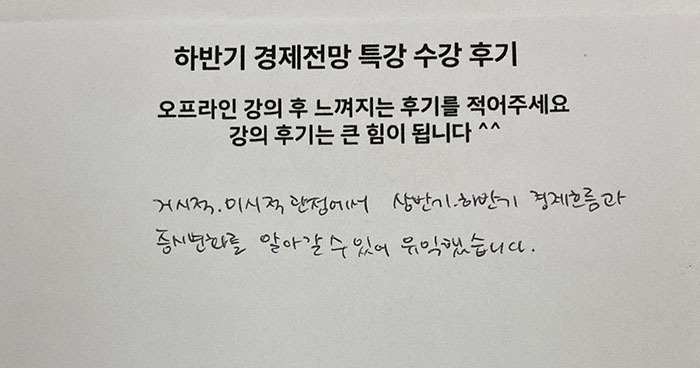 하반기 경제전망 특강 수강 후기
오프라인 강의 후 느껴지는 후기를 적어주세요
강의 후기는 큰 힘이 됩니다 ^^
거시적.미시적 관점에서 상반기.하반기 경제흐름과
증시변화를 알아갈 수 있어 유익했습니다.